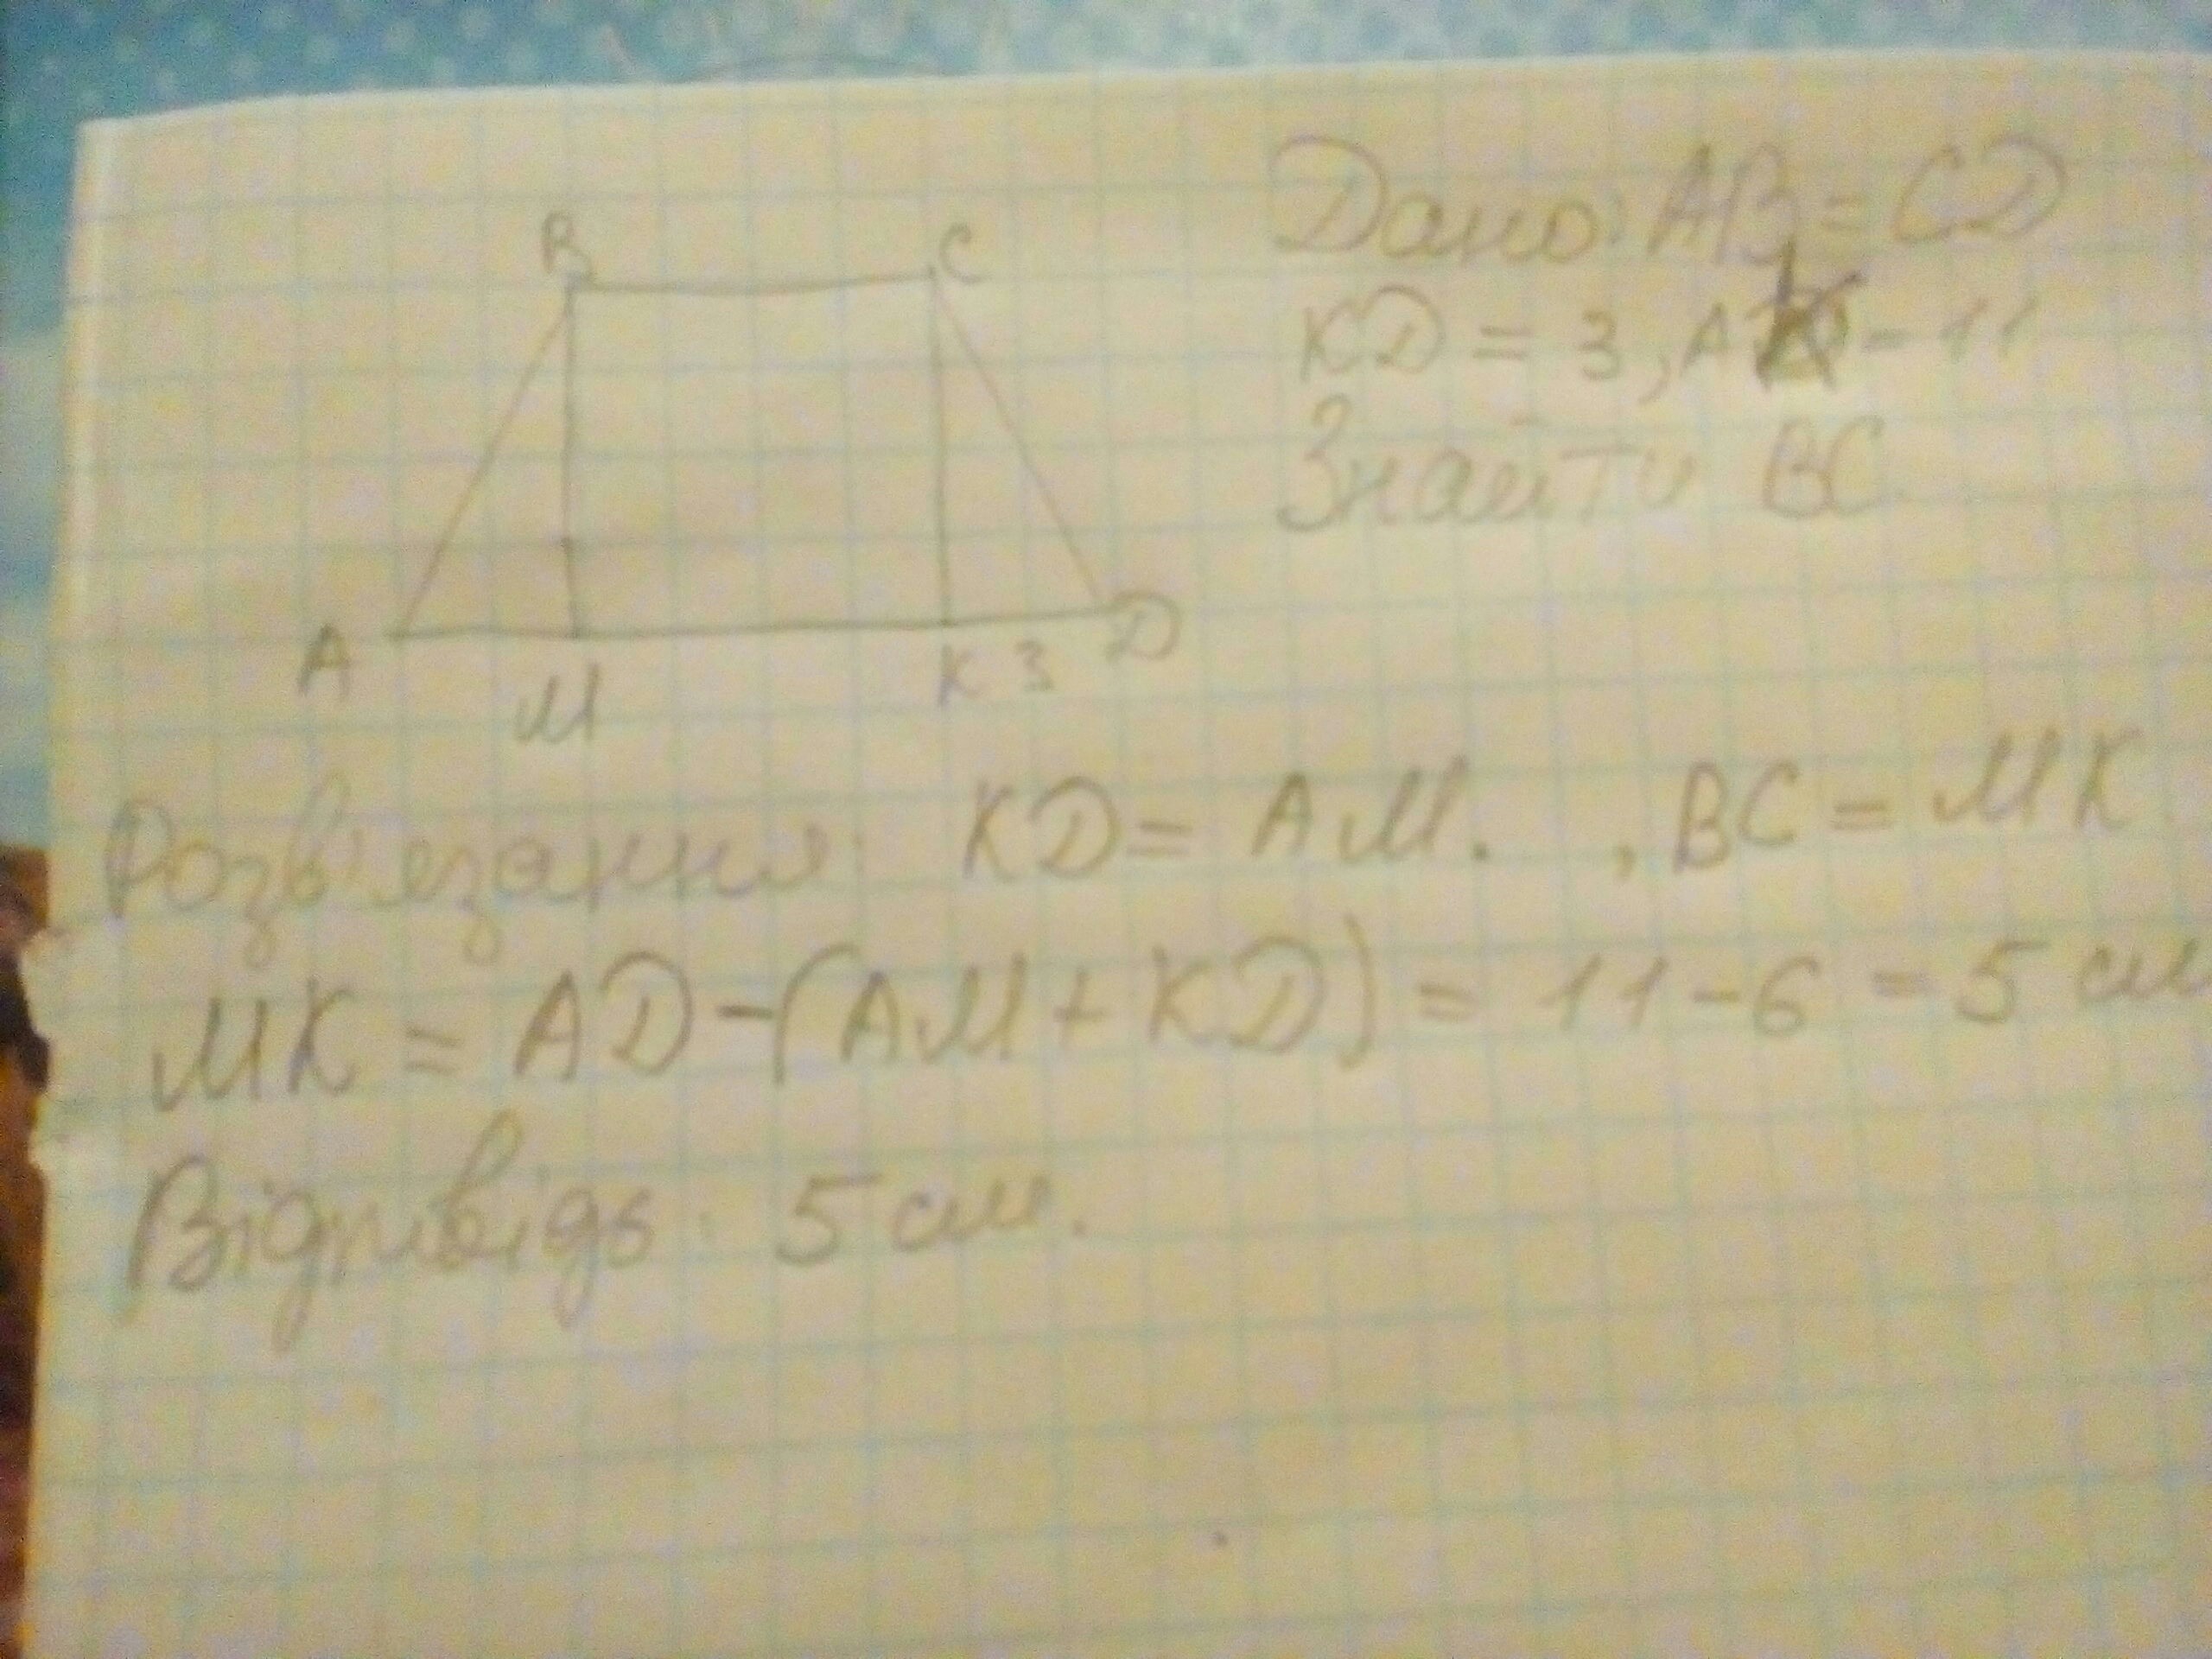 B C
Дано: AB = CD
KD = 3, AK - 11
Знайти BC
A M K 3 D
Розв'язання: KD = AM. , BC = MK
MK = AD - (AM + KD) = 11 - 6 = 5 см
Відповідь: 5 см.